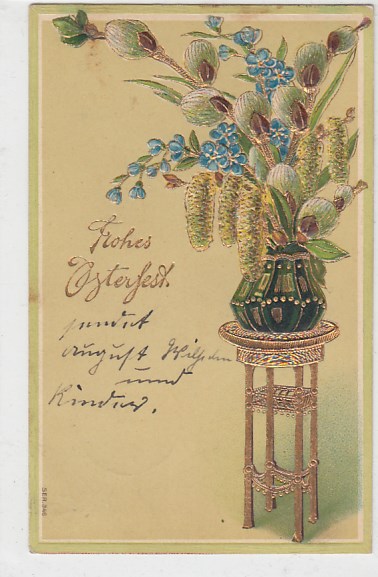 Frohes
Osterfest.
sendet
August Wilhelm
und
Kinder.
SER. 346